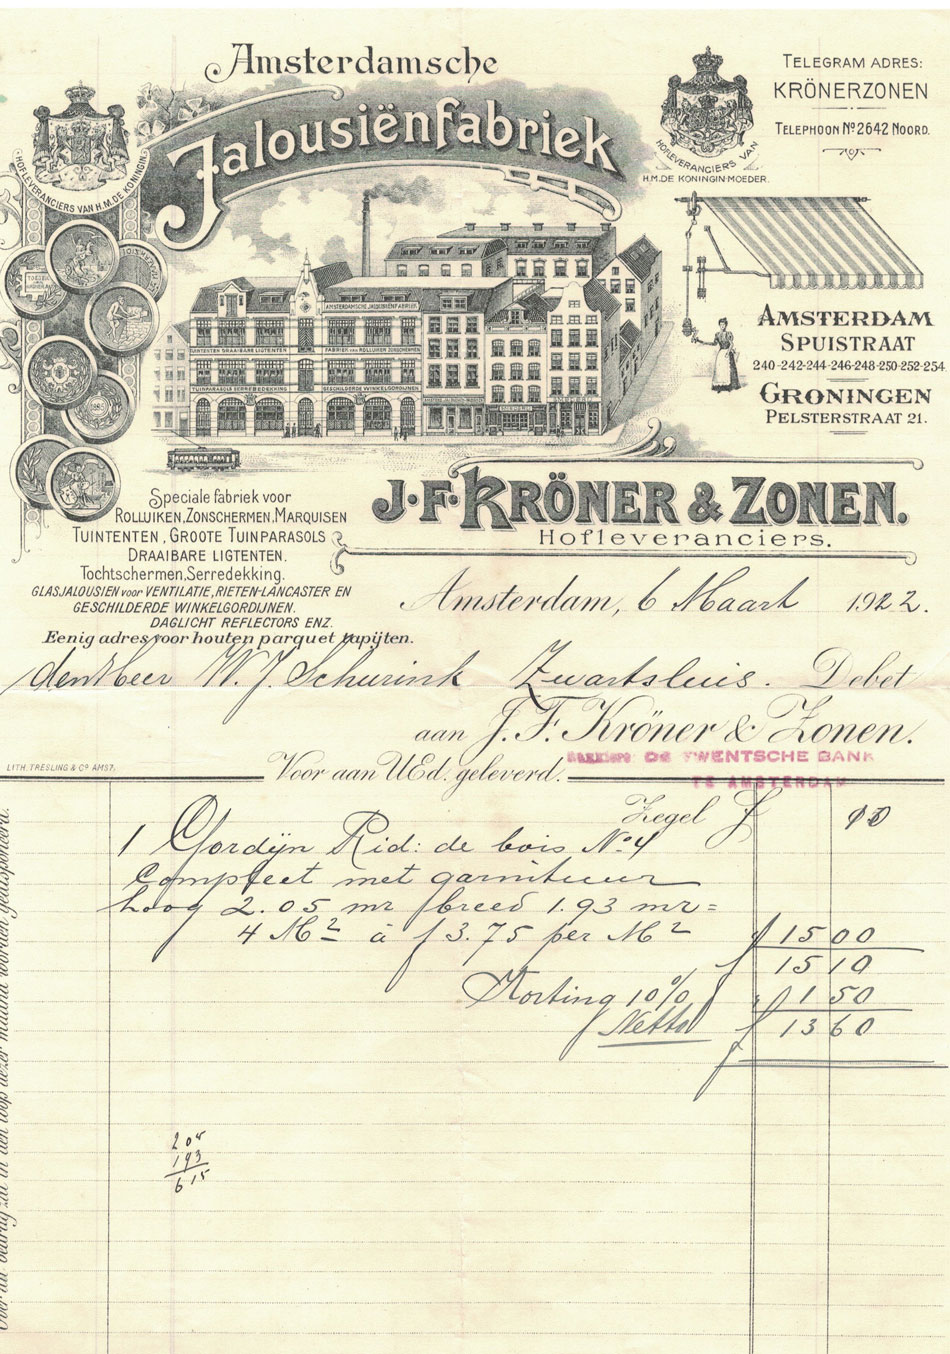 Amsterdamsche
Jalousiënfabriek
HOFLEVERANCIERS VAN H.M. DE KONINGIN.
HOFLEVERANCIERS VAN
H.M. DE KONINGIN-MOEDER.
TELEGRAM ADRES:
KRÖNERZONEN
TELEPHOON No 2642 NOORD.
AMSTERDAMSCHE JALOUSIËNFABRIEK
TUINTENTEN DRAAIBARE LIGTENTEN FABRIEK VAN ROLLUIKEN ZONSCHERMEN
TUINPARASOLS SERREBEDEKKING GESCHILDERDE WINKELGORDIJNEN
AMSTERDAM
SPUISTRAAT
240-242-244-246-248-250-252-254
GRONINGEN
PELSTERSTRAAT 21.
J.F. KRÖNER & ZONEN.
Hofleveranciers.
Speciale fabriek voor
ROLLUIKEN, ZONSCHERMEN, MARQUISEN
TUINTENTEN, GROOTE TUINPARASOLS
DRAAIBARE LIGTENTEN.
Tochtschermen, Serredekking.
GLASJALOUSIEN voor VENTILATIE, RIETEN-LANCASTER EN
GESCHILDERDE WINKELGORDIJNEN.
DAGLICHT REFLECTORS ENZ.
Eenig adres voor houten parquet tapijten.
Amsterdam, 6 Maart 1922.
den Heer W. J. Schurink Zwartsluis. Debet
aan J. F. Kröner & Zonen.
DE TWENTSCHE BANK
TE AMSTERDAM
LITH. TRESLING & Co AMST.
Voor aan UEd. geleverd.
Zegel f 10
1 Gordijn Rid: de bois No 4
Compleet met garnituur
hoog 2.05 mr breed 1.93 mr =
4 M2 à f 3.75 per M2 f 15 00
f 15 10
Korting 10% f 1 50
Netto f 13 60
205
193
615
Over uw bedrag zal in den loop dezer maand worden gedisponeerd.